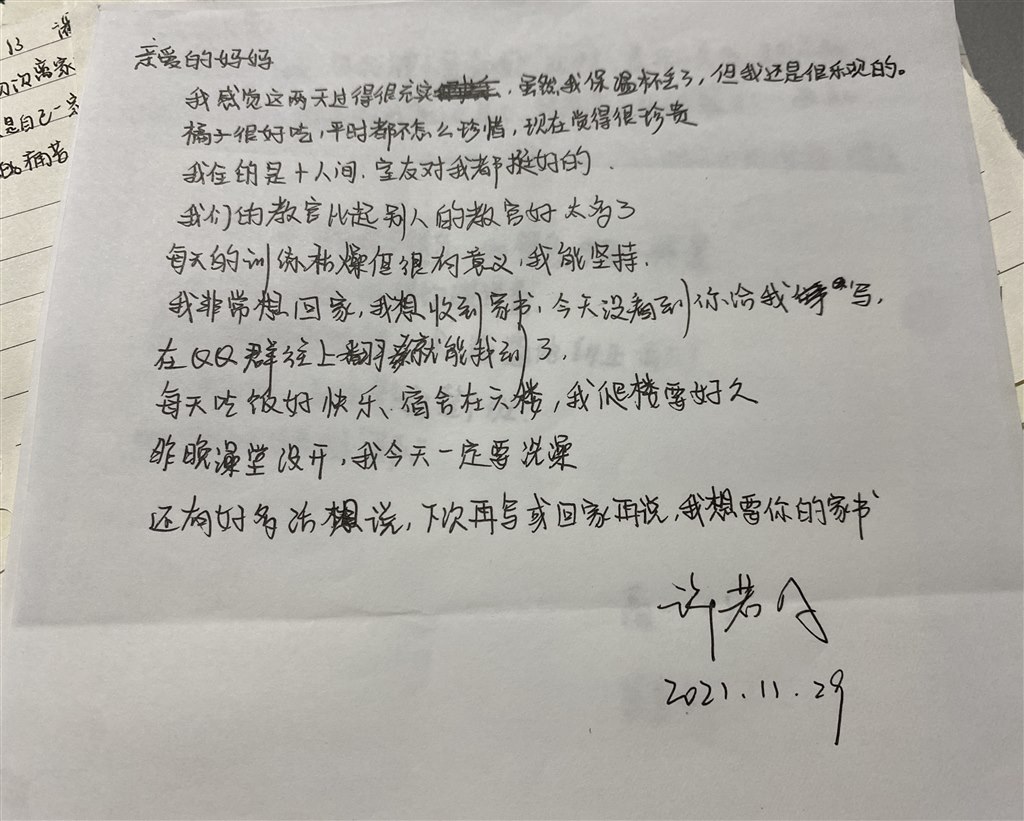 13
次离家
是自己一
痛苦
亲爱的妈妈
我感觉这两天过得很充实,虽然我保温杯丢了,但我还是很乐观的。
橘子很好吃,平时都不怎么珍惜,现在觉得很珍贵
我住的是十人间.室友对我都挺好的.
我们的教官比起别人的教官好太多了
每天的训练枯燥但很有意义,我能坚持.
我非常想回家,我想收到家书,今天没看到你给我写,
在QQ群往上翻就能找到了,
每天吃饭好快乐、宿舍在六楼,我爬楼要好久
昨晚澡堂没开,我今天一定要洗澡
还有好多话想说,下次再写或回家再说,我想要你的家书
许若
2021.11.29